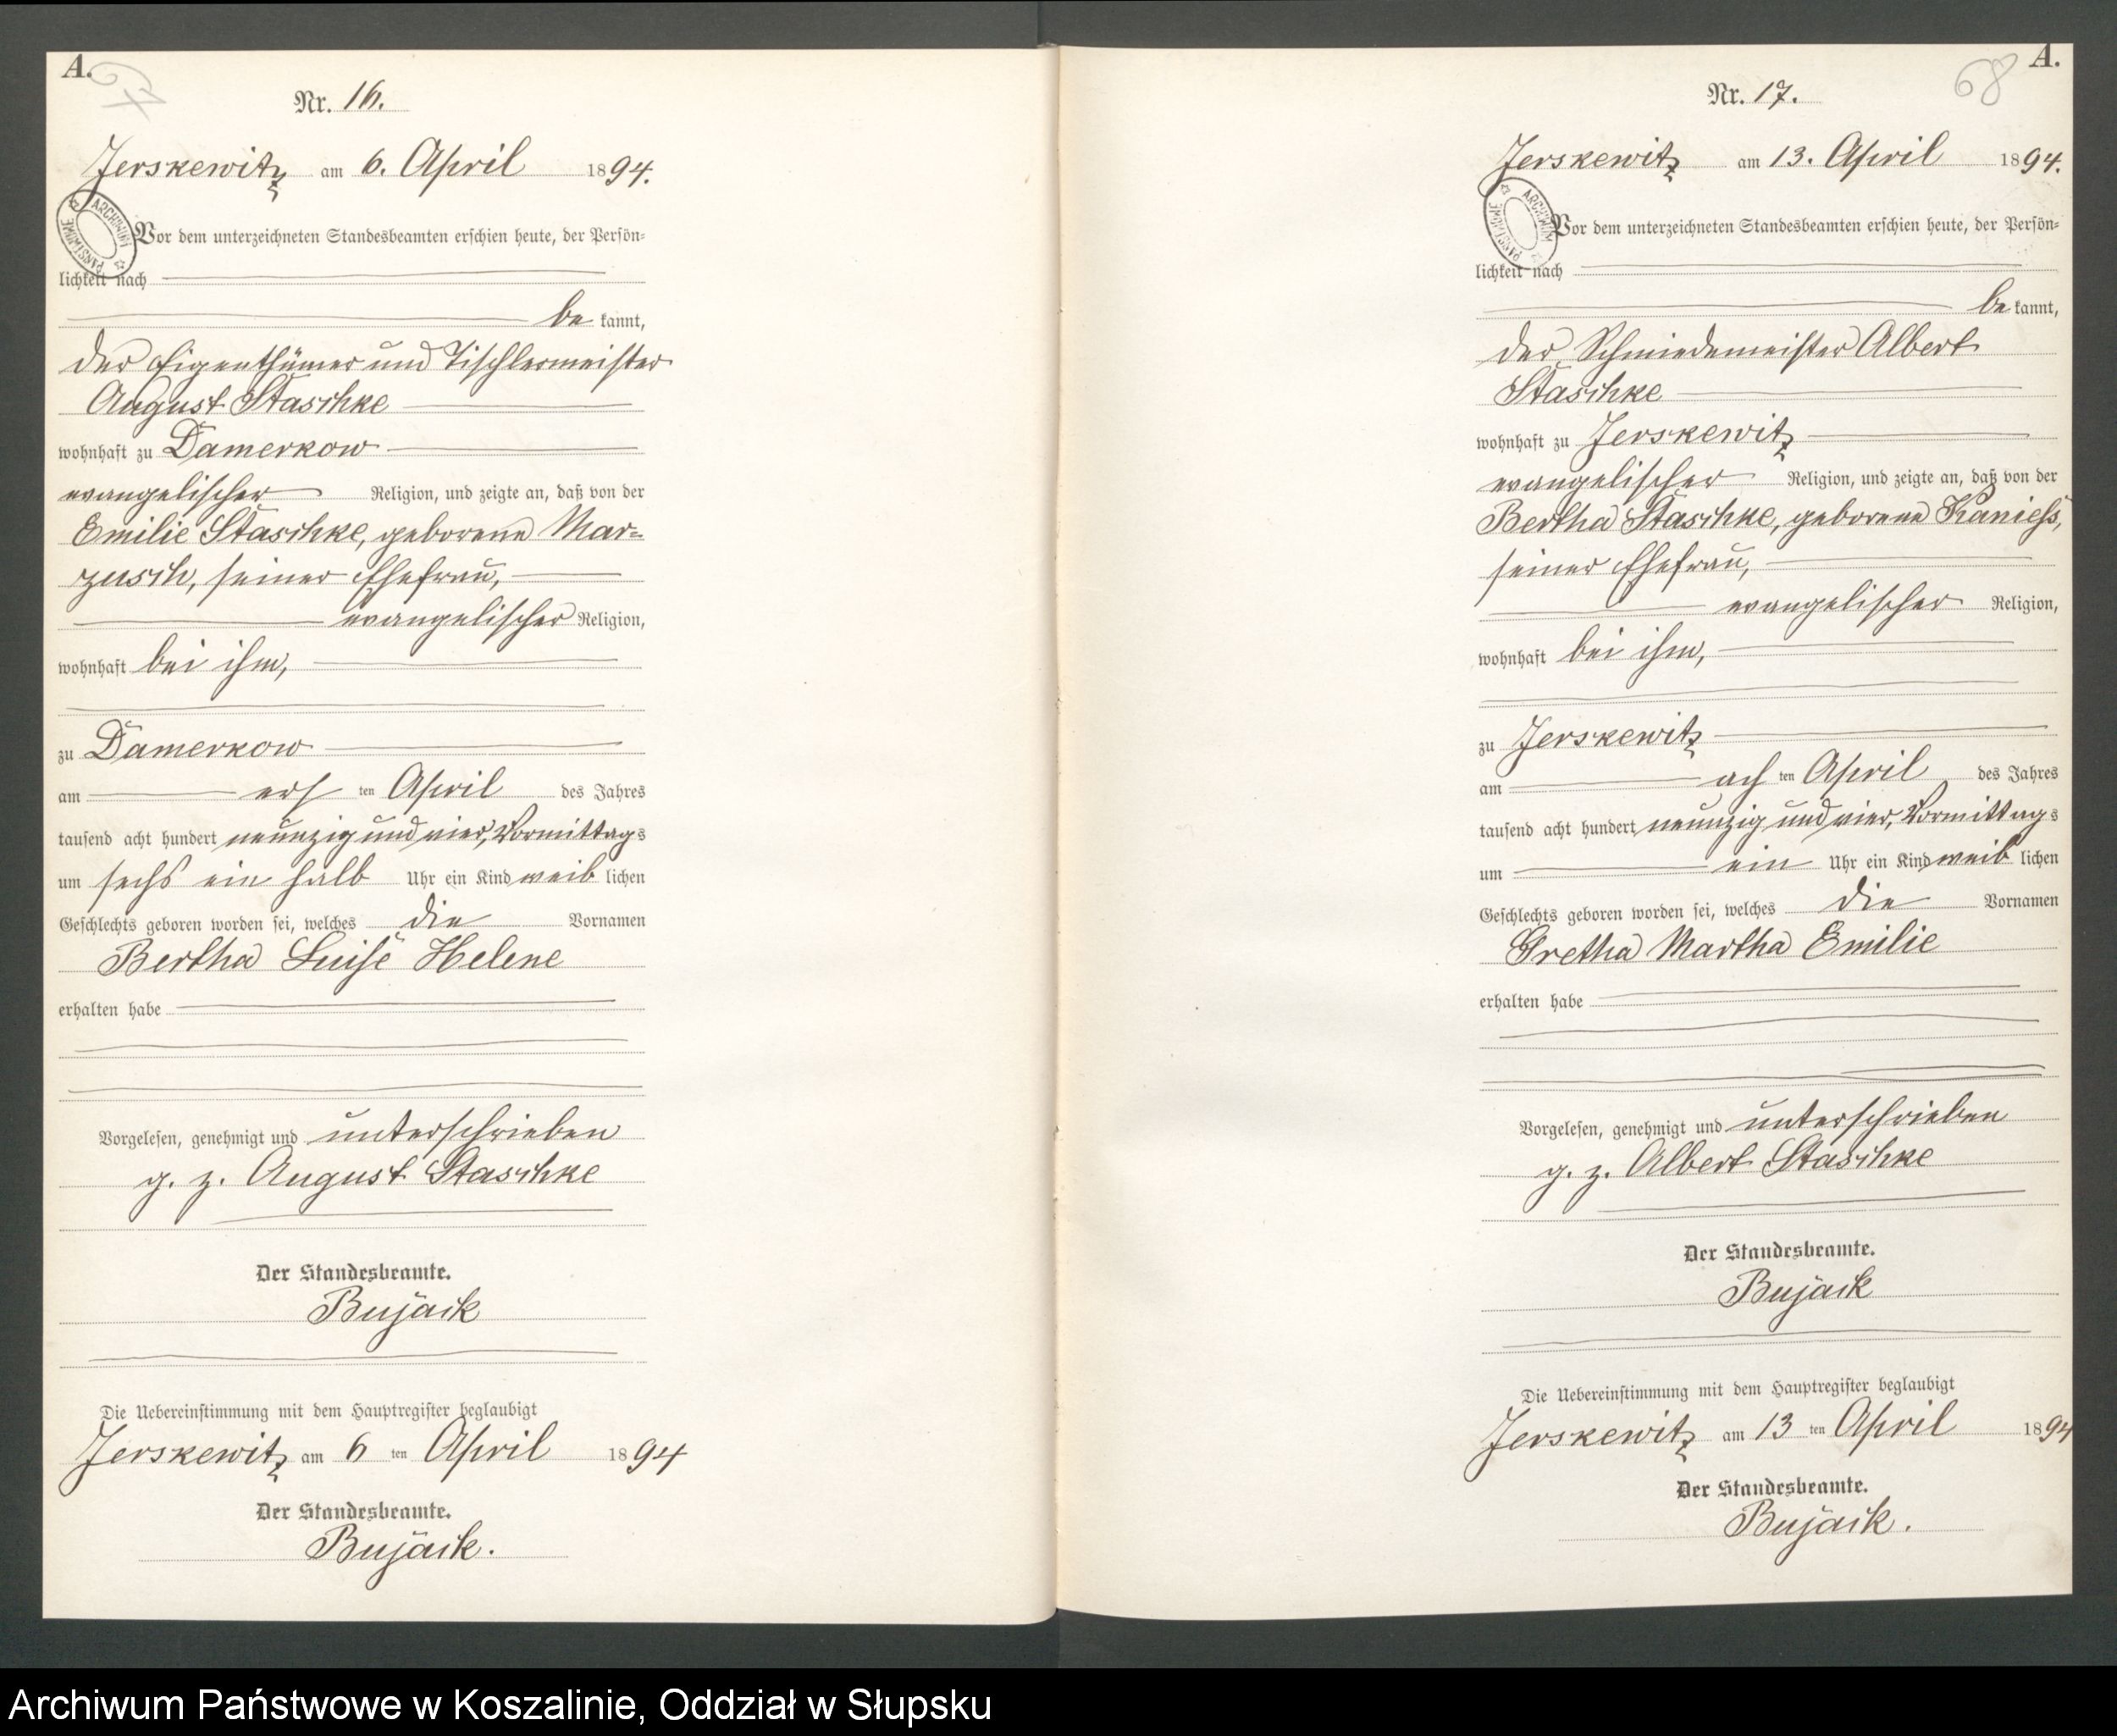 A.
67
Nr. 16.
Jerskewitz am 6. April 1894.
ARCHIWUM PAŃSTWOWE
Vor dem unterzeichneten Standesbeamten erschien heute, der Persön-
lichkeit nach
be kannt,
der Eigenthümer und Tischlermeister
August Staschke
wohnhaft zu Damerkow
evangelischer Religion, und zeigte an, daß von der
Emilie Staschke, geborene Mar-
zusch, seiner Ehefrau,
evangelischer Religion,
wohnhaft bei ihm,
zu Damerkow
am ers ten April des Jahres
tausend acht hundert neunzig und vier, Vormittags
um sechs ein halb Uhr ein Kind weib lichen
Geschlechts geboren worden sei, welches die Vornamen
Bertha Luise Helene
erhalten habe
Vorgelesen, genehmigt und unterschrieben
g. z. August Staschke
Der Standesbeamte.
Bujack
Die Uebereinstimmung mit dem Hauptregister beglaubigt
Jerskewitz am 6 ten April 1894
Der Standesbeamte.
Bujack.
A.
68
Nr. 17.
Jerskewitz am 13. April 1894.
ARCHIWUM PAŃSTWOWE
Vor dem unterzeichneten Standesbeamten erschien heute, der Persön-
lichkeit nach
be kannt,
der Schmiedemeister Albert
Staschke
wohnhaft zu Jerskewitz
evangelischer Religion, und zeigte an, daß von der
Bertha Staschke, geborene Kaniess,
seiner Ehefrau,
evangelischer Religion,
wohnhaft bei ihm,
zu Jerskewitz
am ach ten April des Jahres
tausend acht hundert neunzig und vier, Vormittags
um ein Uhr ein Kind weib lichen
Geschlechts geboren worden sei, welches die Vornamen
Gretha Martha Emilie
erhalten habe
Vorgelesen, genehmigt und unterschrieben
g. z. Albert Staschke
Der Standesbeamte.
Bujack
Die Uebereinstimmung mit dem Hauptregister beglaubigt
Jerskewitz am 13 ten April 1894
Der Standesbeamte.
Bujack.
Archiwum Państwowe w Koszalinie, Oddział w Słupsku